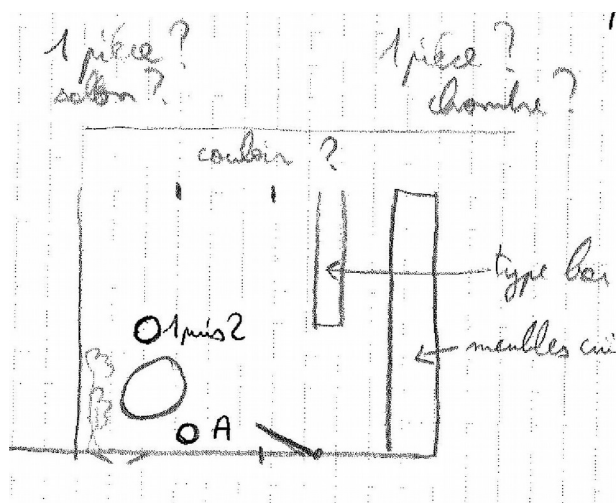 1 pièce ?
salon ?
1 pièce ?
chambre ?
couloir ?
type bar
1 puis 2
meubles cui
A